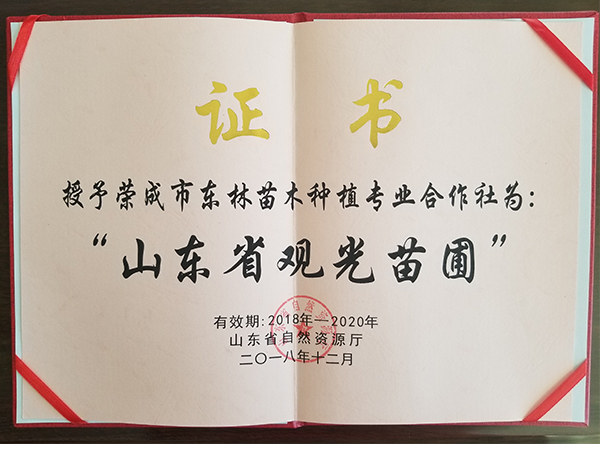 证书
授予荣成市东林苗木种植专业合作社为:
“山东省观光苗圃”
有效期:2018年—2020年
山东省自然资源厅
二〇一八年十二月